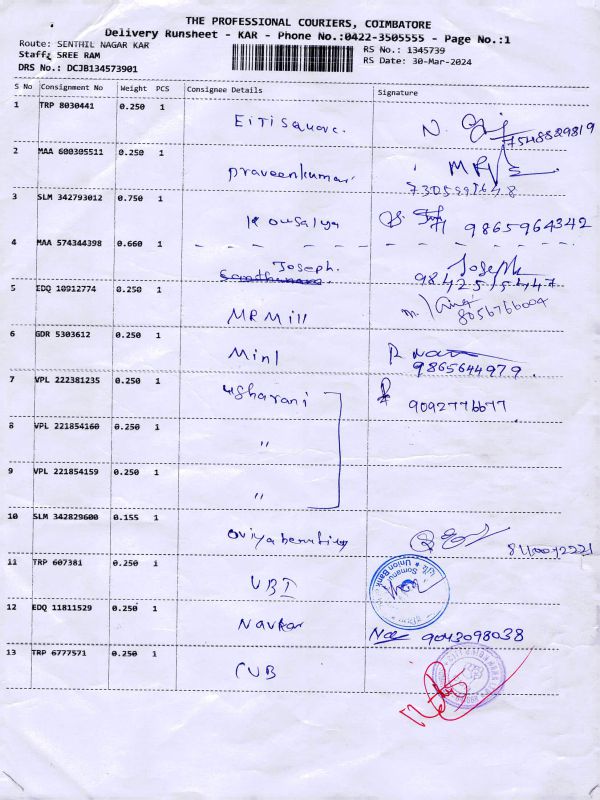 THE PROFESSIONAL COURIERS, COIMBATORE
Delivery Runsheet - KAR - Phone No.:0422-3505555 - Page No.:1
Route: SENTHIL NAGAR KAR
RS No.: 1345739
Staff: SREE RAM
RS Date: 30-Mar-2024
DRS No.: DCJB134573901
S No Consignment No Weight PCS Consignee Details Signature
1 TRP 8030441 0.250 1 Eitisquare. N. 7548829819
2 MAA 600305511 0.250 1 praveenkumar
3 SLM 342793012 0.750 1 Kousalya 9865964342
4 MAA 574344398 0.660 1 Joseph. Joseph
5 EDQ 10912774 0.250 1 MR Mill 8056766004
6 GDR 5303612 0.250 1 Mini 9865644979.
7 VPL 222381235 0.250 1 usharani 9092776677
8 VPL 221854160 0.250 1 "
9 VPL 221854159 0.250 1 "
10 SLM 342829600 0.155 1
11 TRP 607381 0.250 1 UBI Union Bank
12 EDQ 11811529 0.250 1 Navkar 9043098038
13 TRP 6777571 0.250 1 CUB